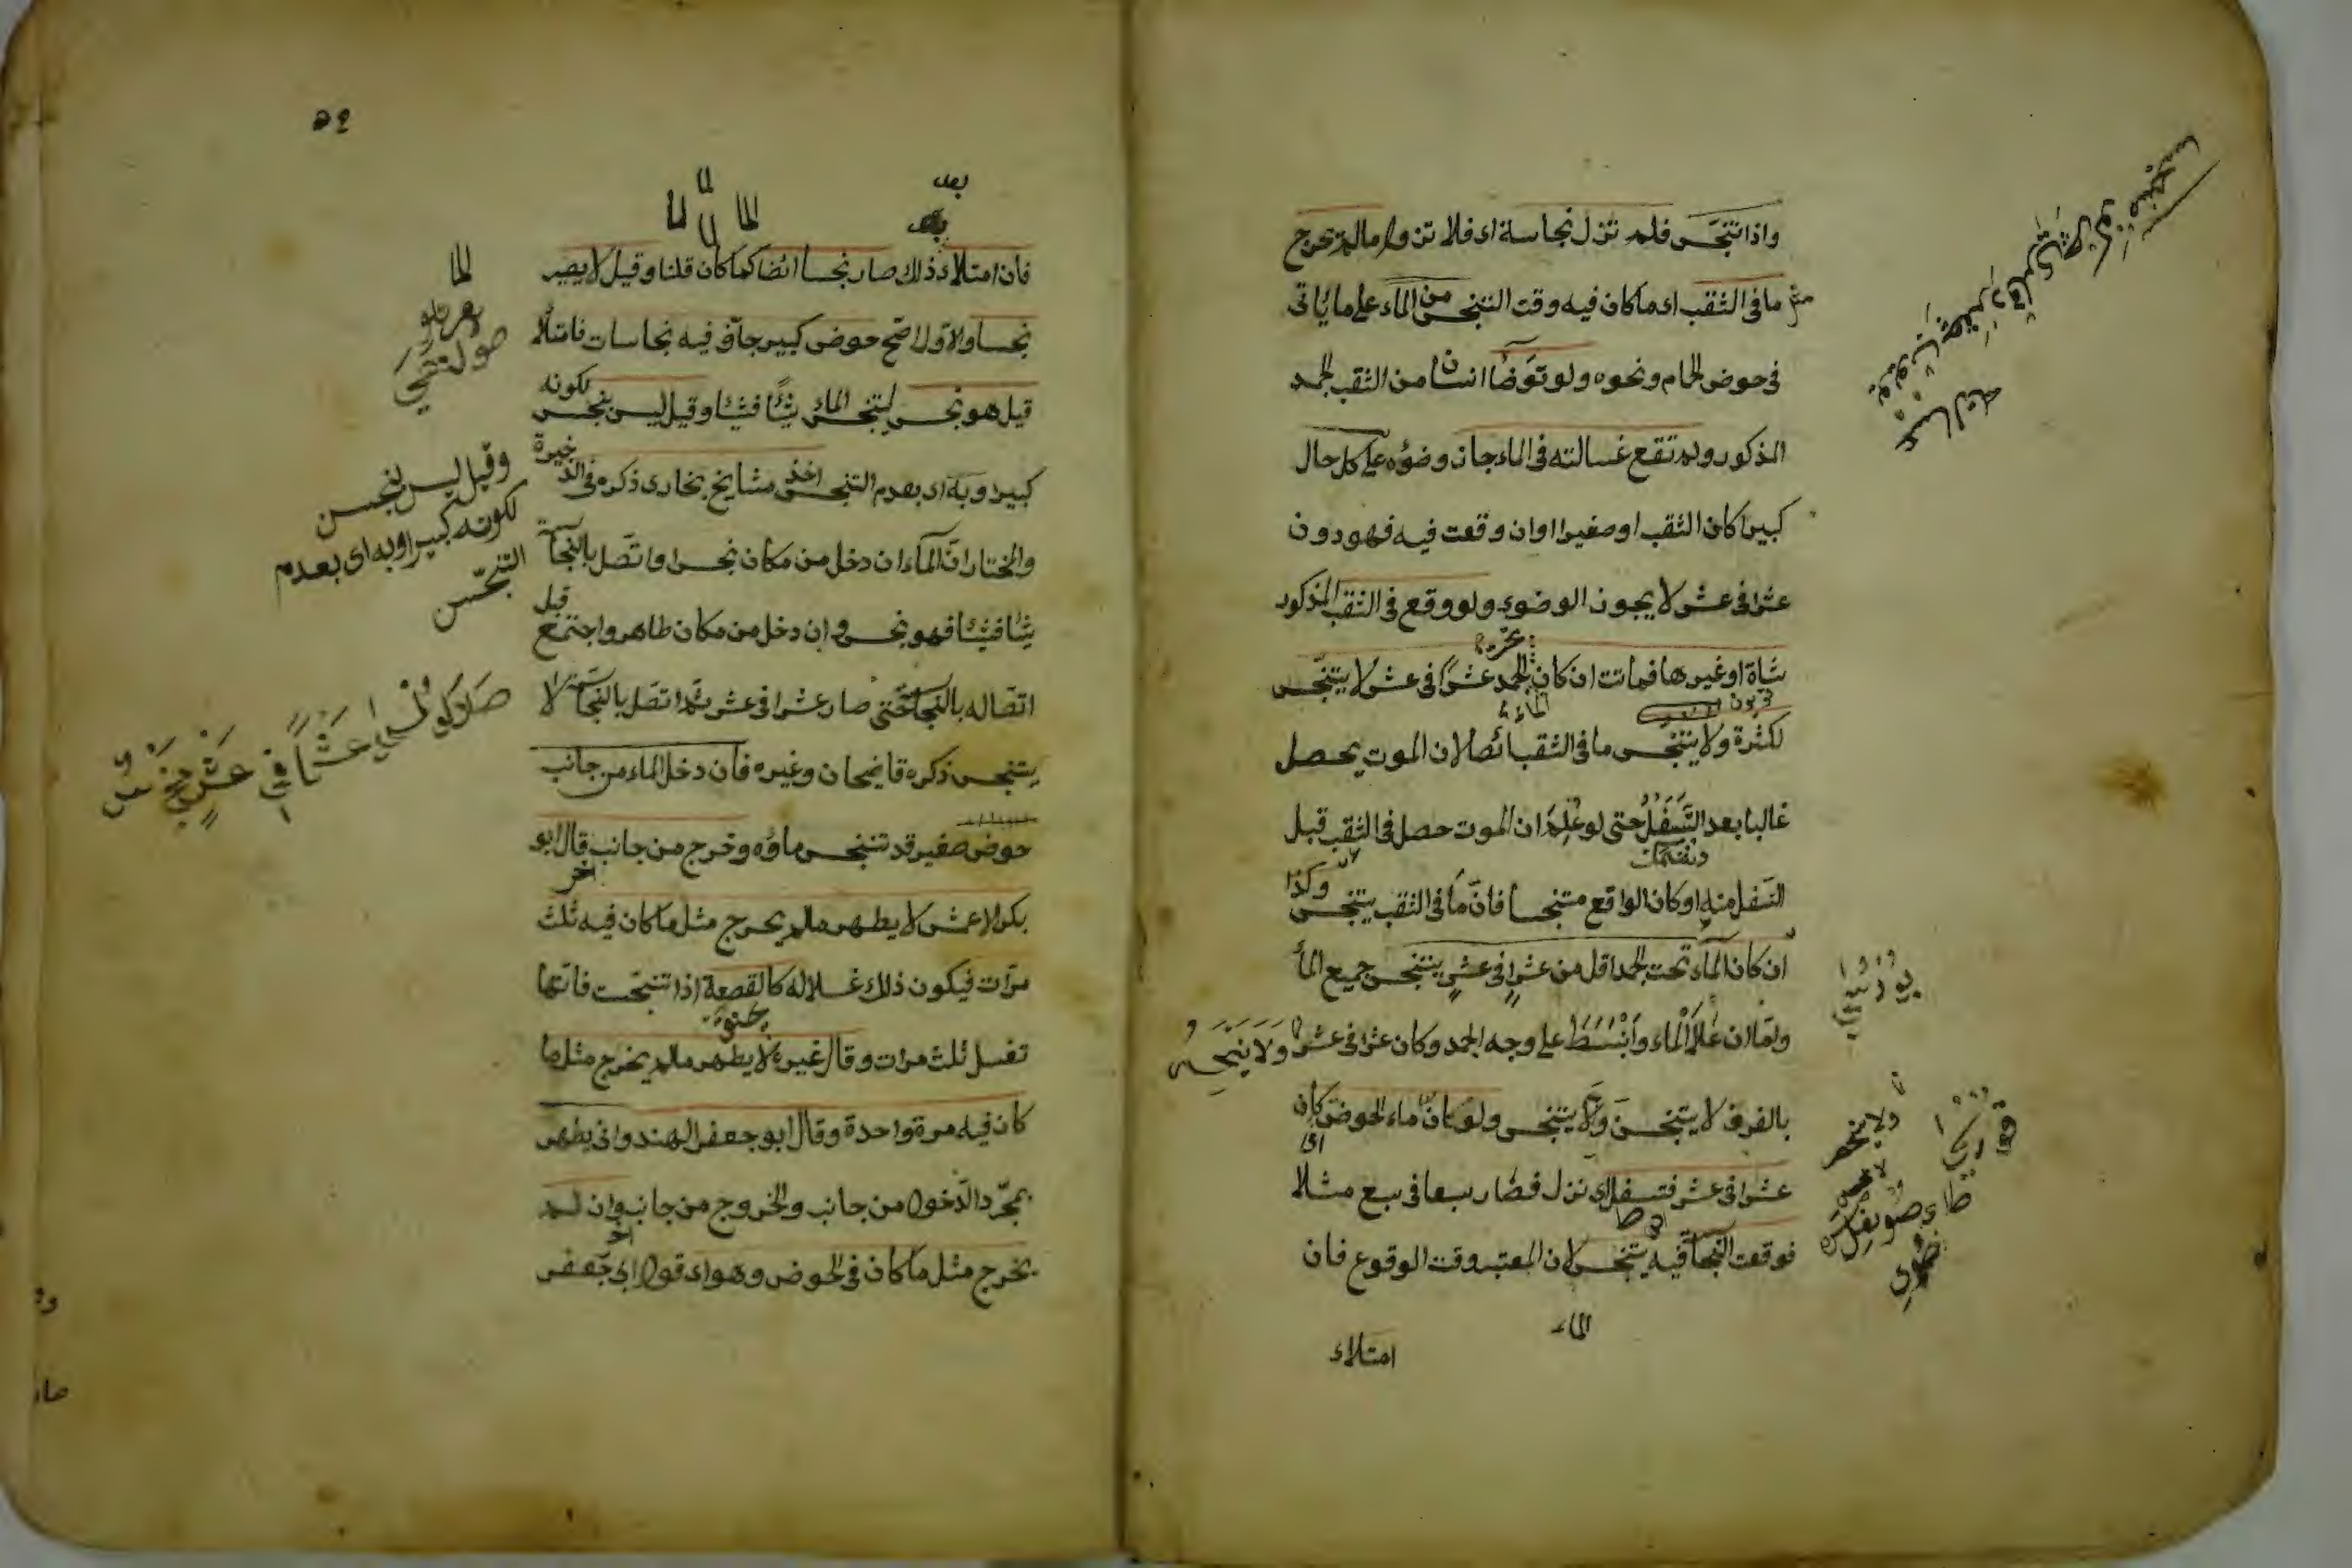 واذا تنجس فلم تنزل نجاسة اى فلا تزول مالم يخرج
ما فى الثقب اى ما كان فيه وقت التنجس من الماء على ما يأتى
فى حوض الحمام ونحوه ولو توضأ انسان من الثقب الجمد
المذكور ولم تقع غسالته فى الماء جاز وضوءه على كل حال
كبيرا كان الثقب او صغيرا وان وقعت فيه فهو دون
عشر فى عشر لا يجوز الوضوء ولو وقع فى الثقب المذكور
شاة او غيرها فماتت ان كان الجمد عشرا فى عشر لا يتنجس
لكثرة ولا يتنجس ما فى الثقب ائضا لان الموت يحصل
غالبا بعد التسفل حتى لو علم ان الموت حصل فى الثقب قبل
التسفل منه او كان الواقع متنجسا فان ما فى الثقب يتنجس وكذا
ان كان الماء تحت الجمد اقل من عشر فى عشر يتنجس جميع الماء
واما ان علا الماء وانبسط على وجه الجمد وكان عشرا فى عشر ولا يتنجس
بالغرف لا يتنجس ولا يتنجس ولو كان ماء الحوض كان
عشرا فى عشر فتسفل اى نزل فصار سبعا فى سبع مثلا
فوقعت النجاسة فيه يتنجس لان المعتبر وقت الوقوع فان
الماء
امتلاء
٥٩
بعد
فان امتلاء ذلك صار نجسا ائضا كما كان قلنا وقيل لا يصير
نجسا والاول اصح حوض كبير جاف فيه نجاسات فامتلأ
قيل هو نجس لتنجس الماء شيأ فشيأ وقيل ليس بنجس لكونه
كبيرا وبه اى بعدم التنجس اخذ مشايخ بخارى ذكره فى الذخيرة
والمختار ان الماء ان دخل من مكان نجس او اتصل بالنجاسة
شيأ فشيأ فهو نجس وان دخل من مكان طاهر واجتمع قبل
اتصاله بالنجاسة حتى صار عشرا فى عشر ثم اتصل بالنجاسة لا
يتنجس ذكره قاضيحان وغيره فان دخل الماء من جانب
حوض صغير قد تنجس ماؤه وخرج من جانب آخر قال ابو
بكر الاعمش لا يطهر مالم يخرج مثل ما كان فيه ثلث
مرات فيكون ذلك غسلا له كالقصعة اذا تنجست فانها
تغسل ثلث مرات وقال غيره لا يطهر مالم يخرج مثل ما
كان فيه مرة واحدة وقال ابو جعفر الهندوانى يطهر
بمجرد الدخول من جانب والخروج من جانب آخر وان لم
يخرج مثل ما كان فى الحوض وهو اى قول ابى جعفر
وقيل ليس بنجس
لكونه كبيرا وبه اى بعدم
التنجس